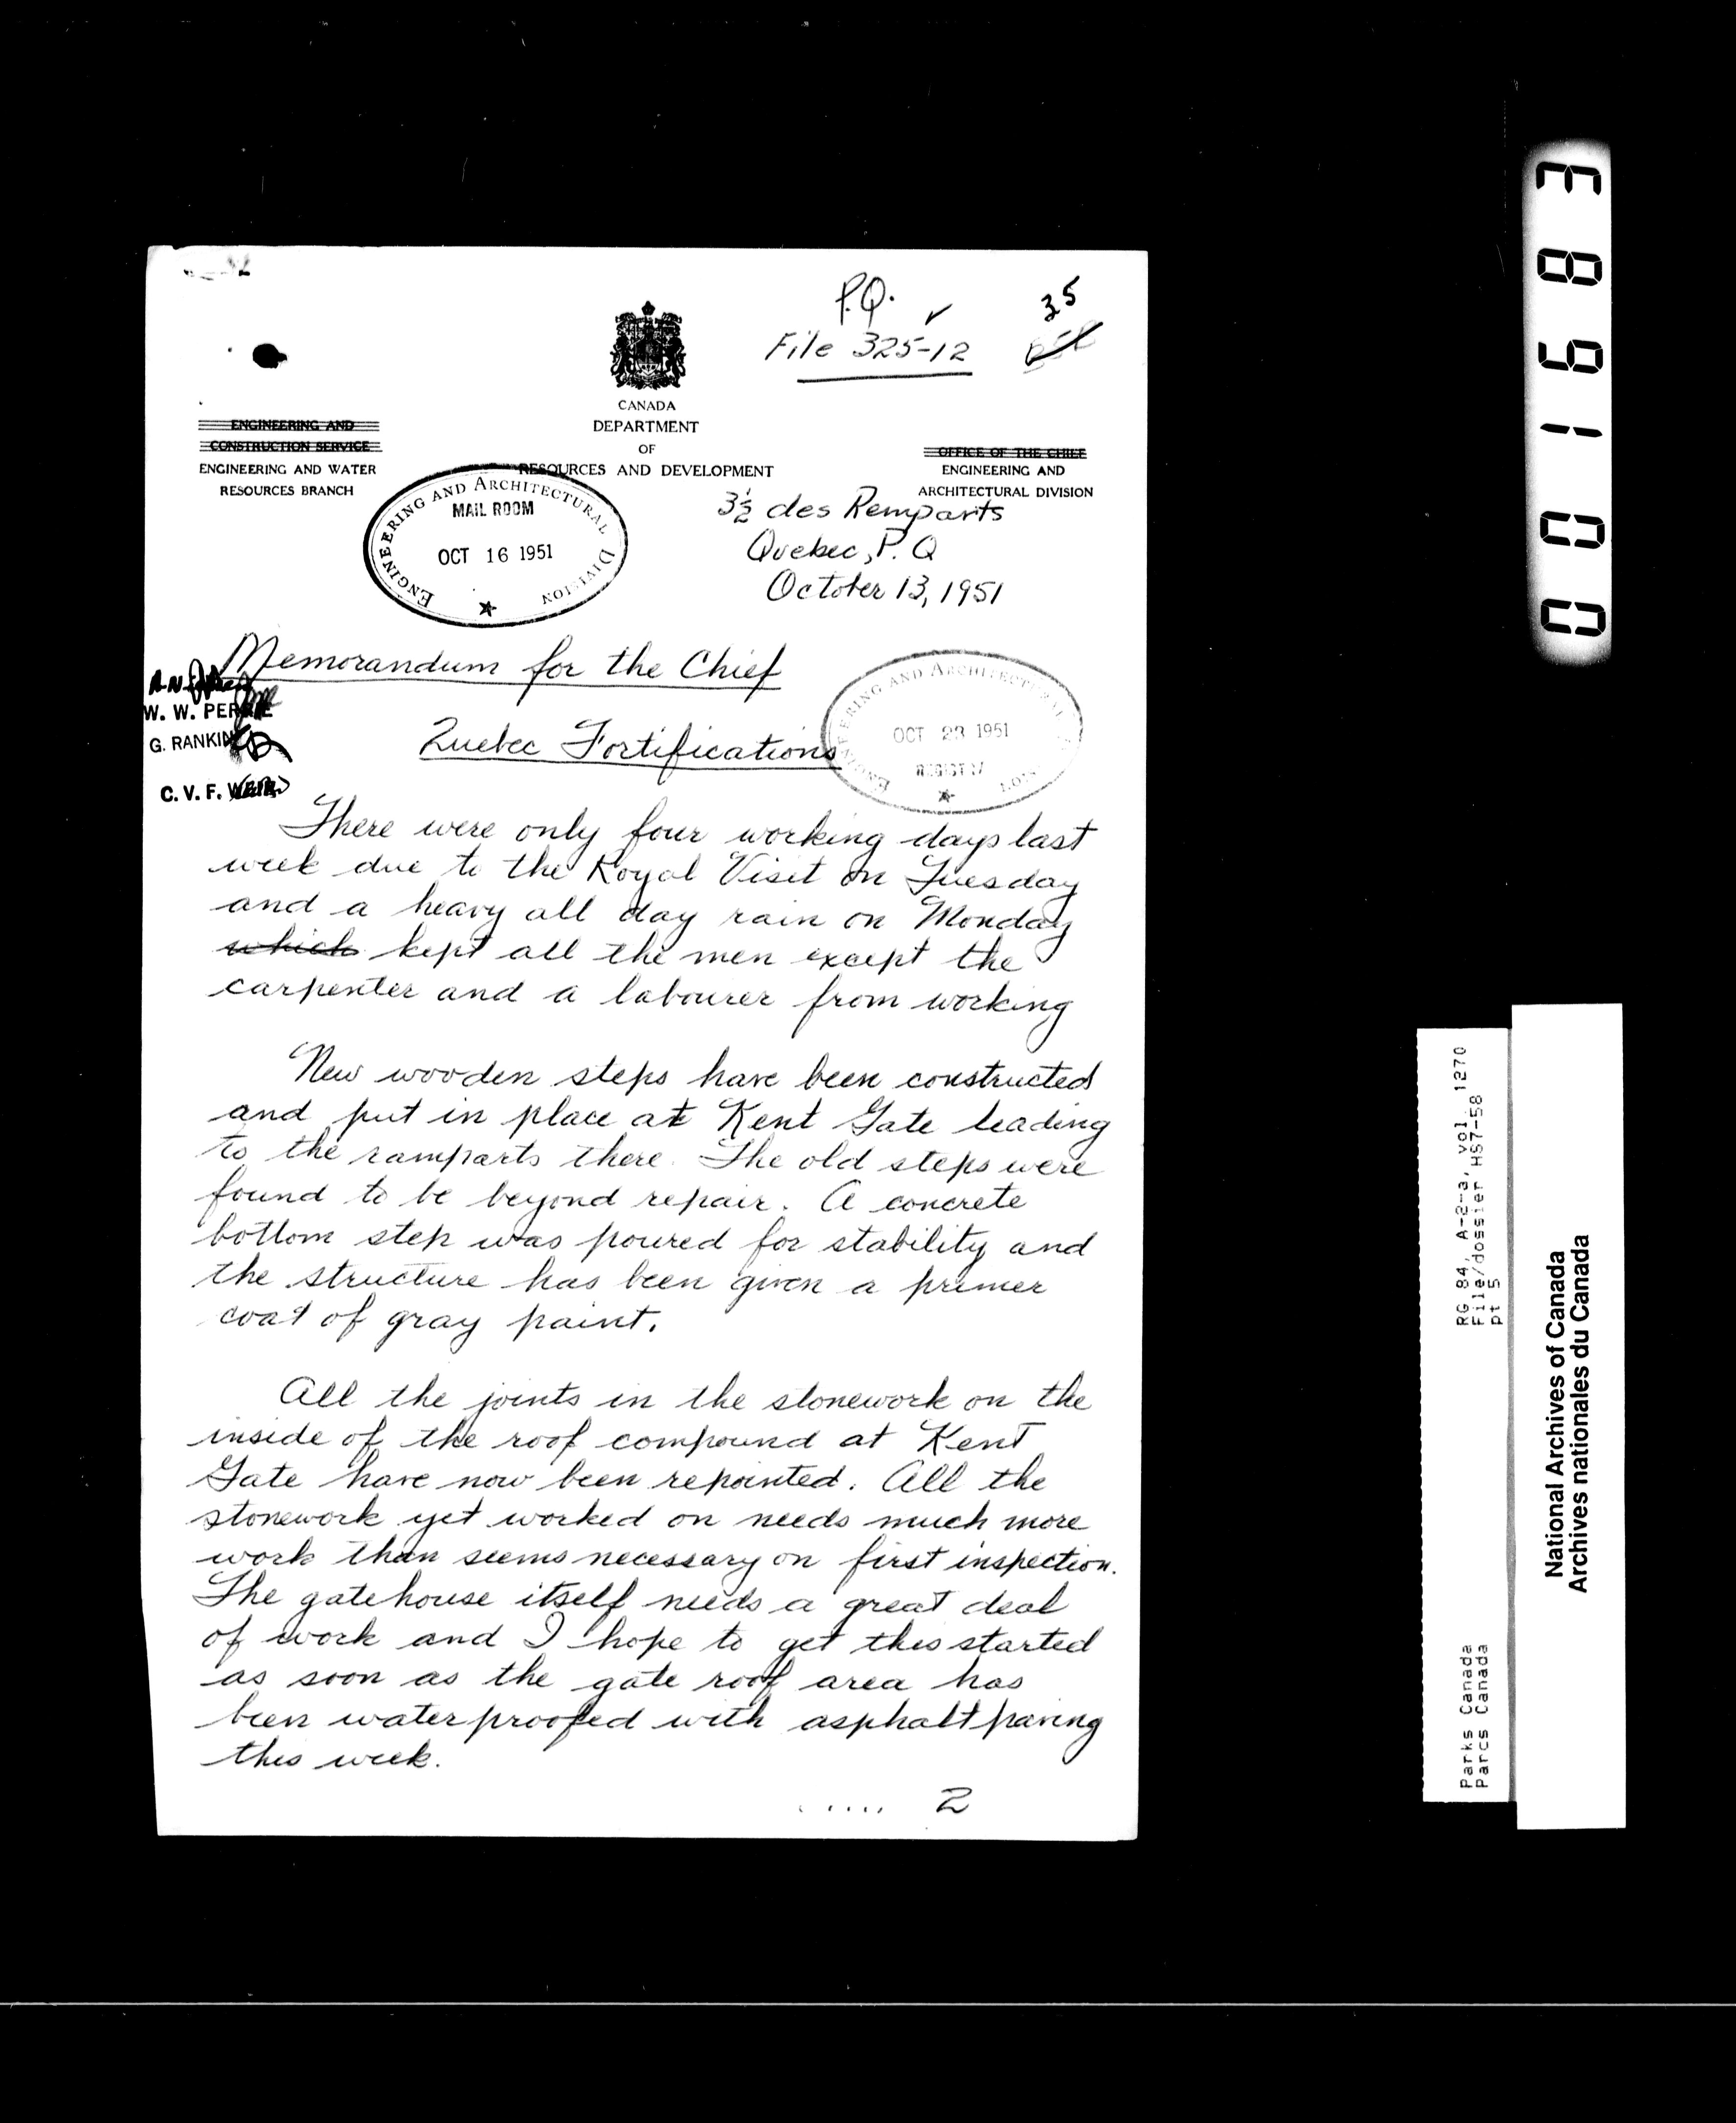 P.Q.
File 325-12
35
CANADA
DEPARTMENT
OF
RESOURCES AND DEVELOPMENT
ENGINEERING AND
CONSTRUCTION SERVICE
ENGINEERING AND WATER
RESOURCES BRANCH
OFFICE OF THE CHIEF
ENGINEERING AND
ARCHITECTURAL DIVISION
ENGINEERING AND ARCHITECTURAL DIVISION
MAIL ROOM
OCT 16 1951
3½ des Remparts
Quebec, P. Q
October 13, 1951
Memorandum for the Chief
W. W. PERRIE
G. RANKIN
C. V. F. WEIR
Quebec Fortifications
ENGINEERING AND ARCHITECTURAL
OCT 23 1951
REGISTRY
There were only four working days last
week due to the Royal Visit on Tuesday
and a heavy all day rain on Monday
which kept all the men except the
carpenter and a labourer from working
New wooden steps have been constructed
and put in place at Kent Gate leading
to the ramparts there. The old steps were
found to be beyond repair. A concrete
bottom step was poured for stability and
the structure has been given a primer
coat of gray paint.
All the joints in the stonework on the
inside of the roof compound at Kent
Gate have now been repointed. All the
stonework yet worked on needs much more
work than seems necessary on first inspection.
The gatehouse itself needs a great deal
of work and I hope to get this started
as soon as the gate roof area has
been waterproofed with asphalt paving
this week.
..... 2
001683
RG 84, A-2-a, vol. 1270
File/dossier HS7-58
pt 5
Parks Canada
Parcs Canada
National Archives of Canada
Archives nationales du Canada